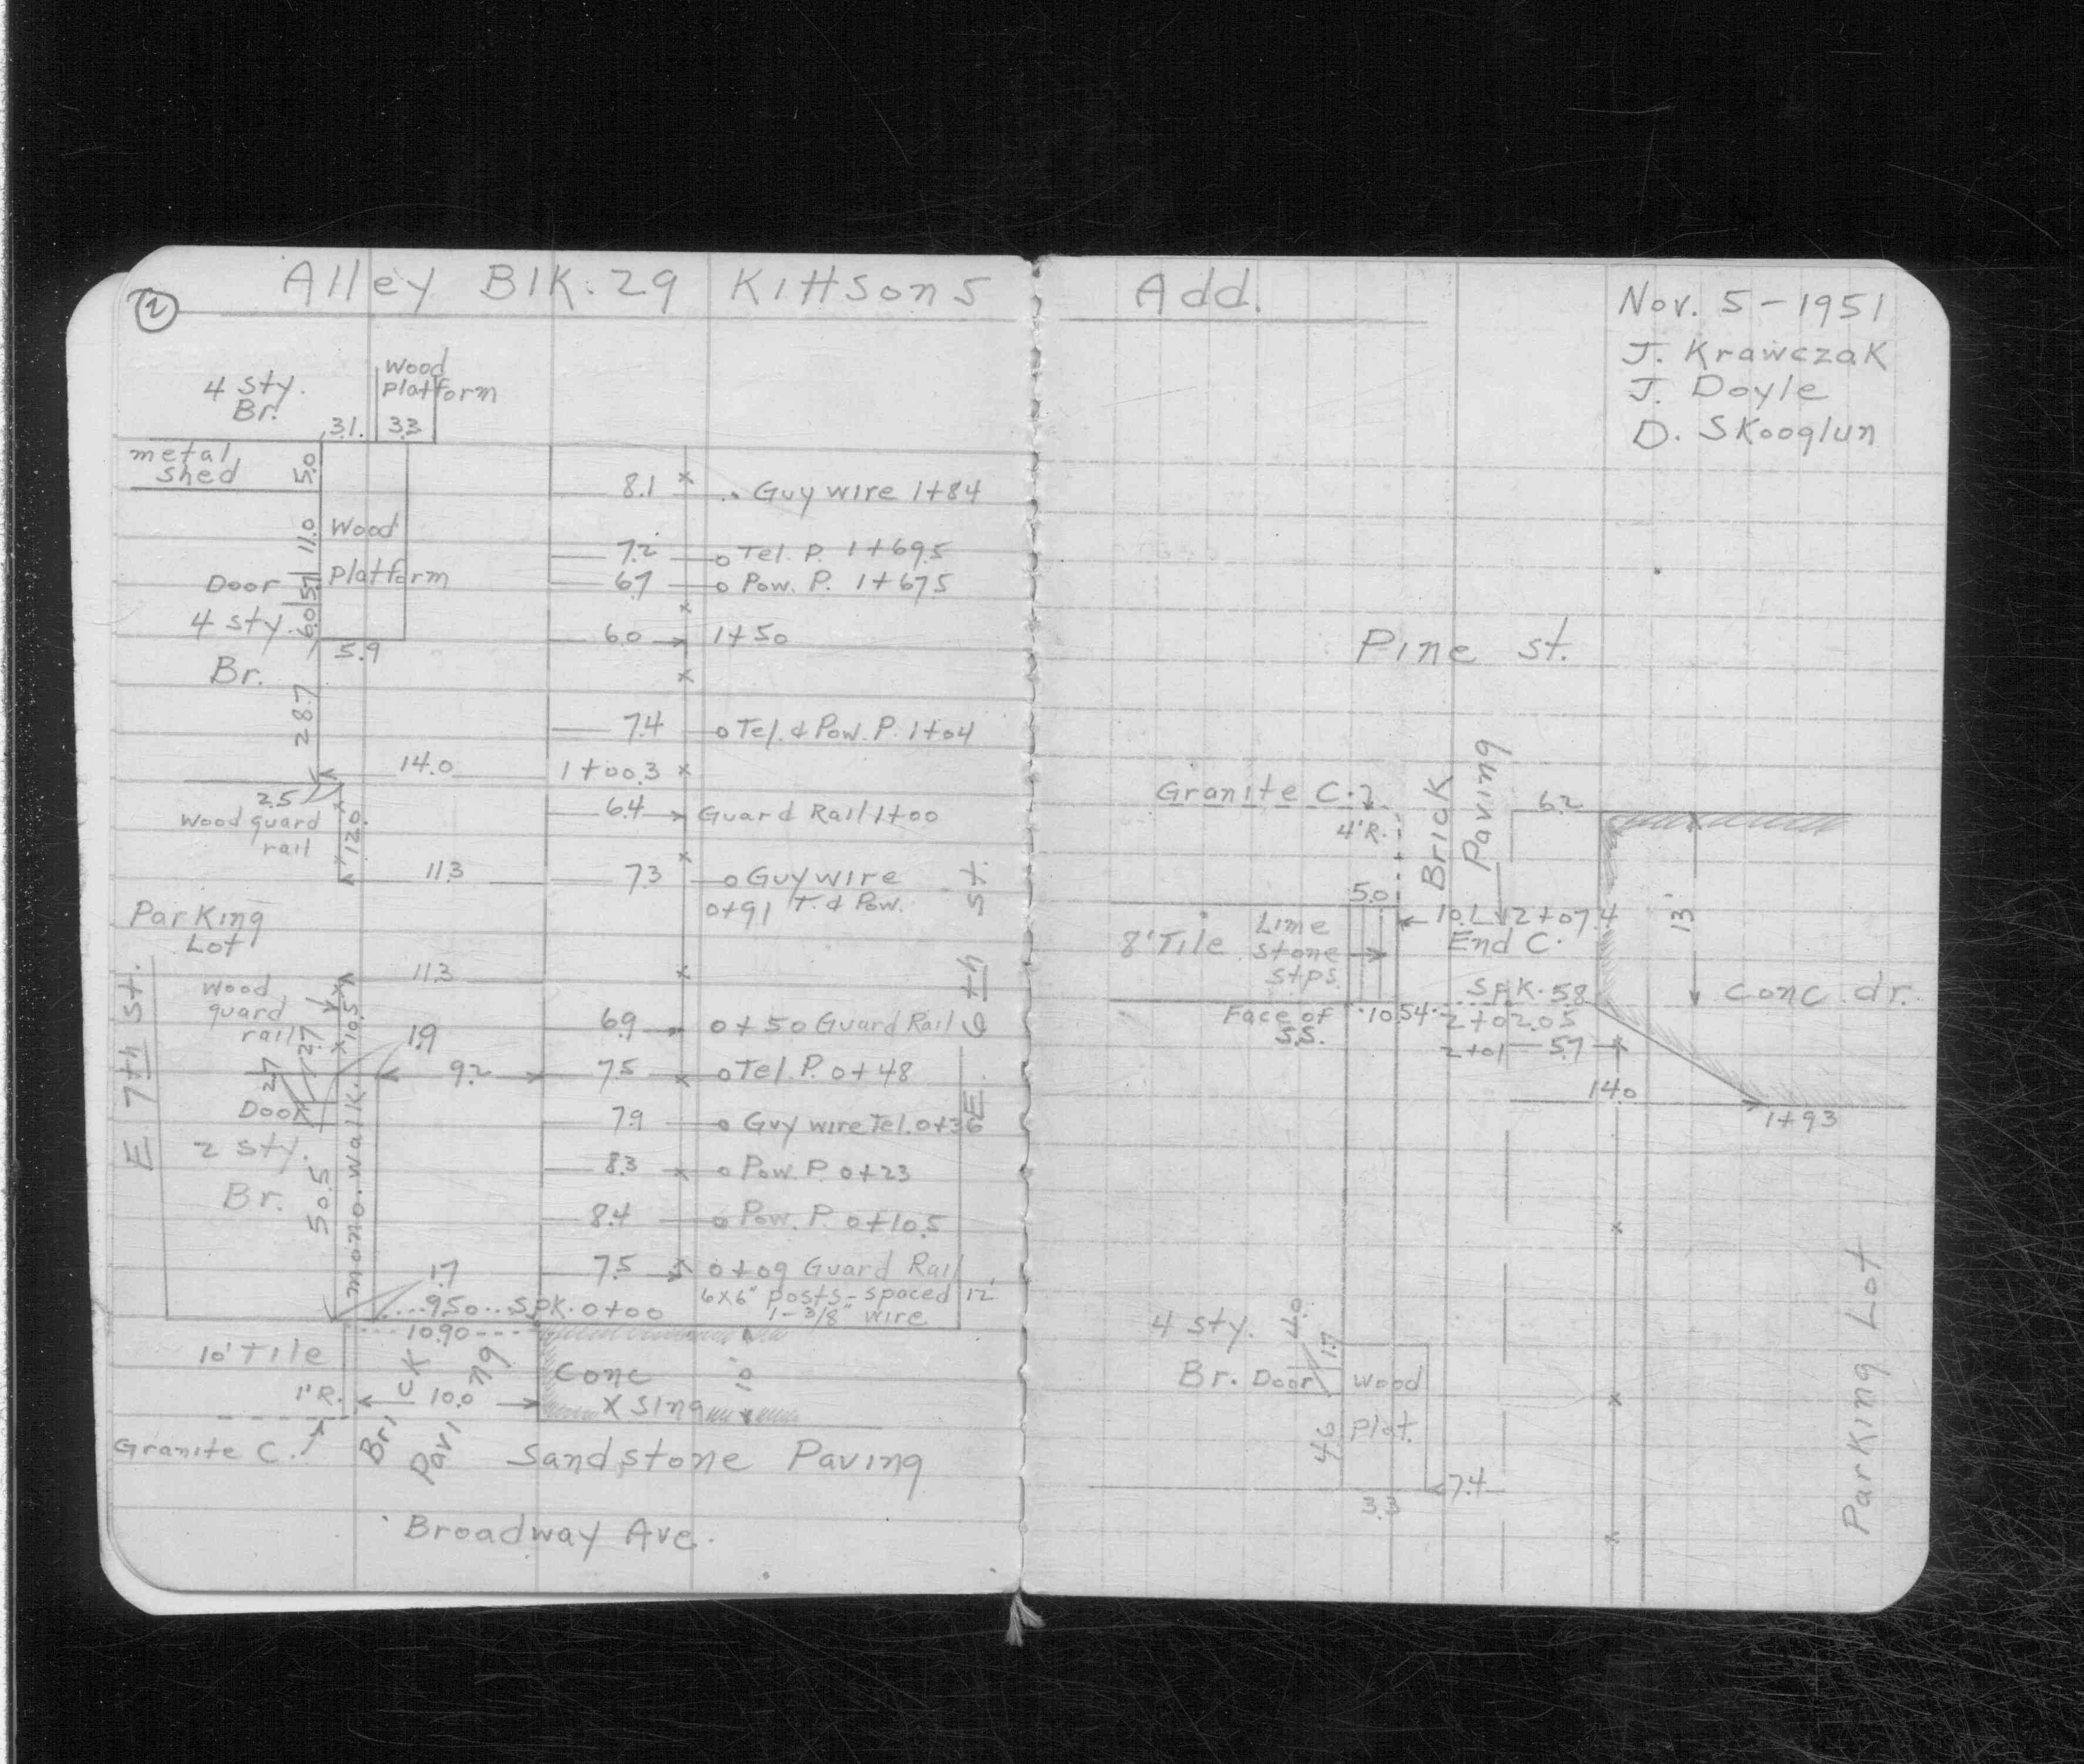 Alley Blk. 29 Kittsons Add.
2
Nov. 5 - 1951
J. Krawczak
J. Doyle
D. Skooglun
4 sty.
Br.
Wood
Platform
3.1
3.3
metal
shed
5.0
8.1
Guy wire 1+84
11.0
Wood
Platform
7.2
Tel. P. 1+69.5
Door
5.7
6.7
Pow. P. 1+67.5
4 sty.
Br.
6.0
6.0
1+50
5.9
28.7
7.4
Tel. & Pow. P. 1+04
14.0
1+00.3
2.5
Wood guard
rail
12.0
6.4
Guard Rail 1+00
11.3
7.3
Guy wire
0+91 T. & Pow.
Parking
Lot
11.3
E. 7th st.
E. 6th st.
Wood
guard
rail
10.5
2.7
2.7
1.9
6.9
0+50 Guard Rail
9.2
7.5
Tel. P. 0+48
Door
7.9
Guy wire Tel. 0+36
2 sty.
Br.
50.5
mono. walk.
8.3
Pow. P. 0+23
8.4
Pow. P. 0+10.5
1.7
7.5
0+09 Guard Rail
6x6" posts - spaced 12'
1 - 3/8" wire
9.50 SPK. 0+00
10.90
10' Tile
1' R.
10.0
Brick
Paving
Conc
X sing
10'
Granite C.
Sandstone Paving
Broadway Ave.
Pine st.
Granite C.
4' R.
Brick
Paving
6.2
5.0
10.1
2+07.4
End C.
13'
8' Tile
Lime
stone
stps.
Spk. 5.8
2+02.0
conc. dr.
Face of
S.S.
10.54
2+01
5.7
14.0
1+93
4 sty.
Br.
Door
4.0
1.7
Wood
Plat.
4.6
7.4
3.3
Parking Lot